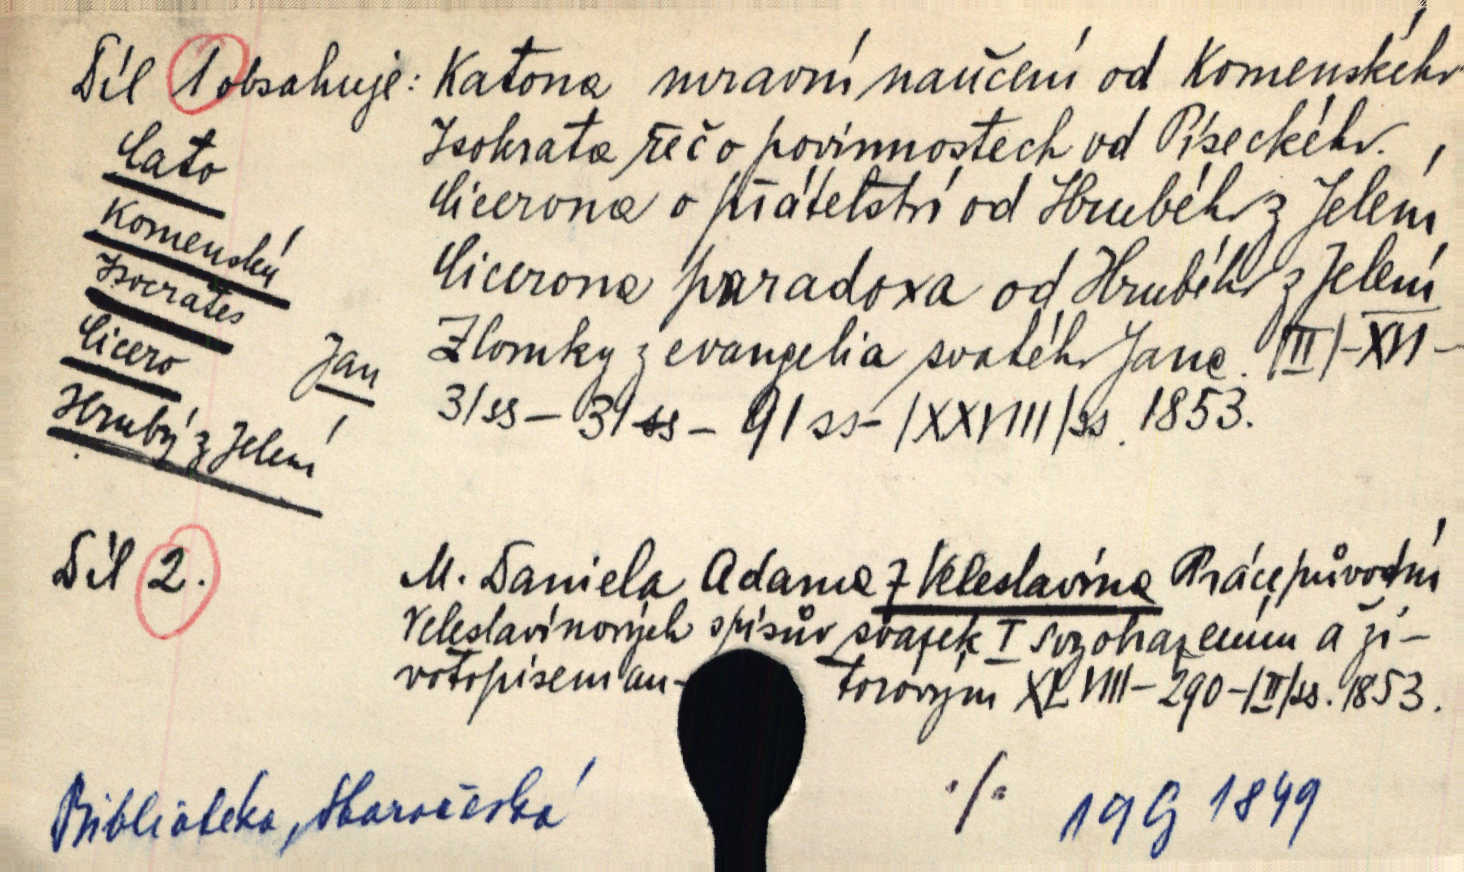 Díl 1 obsahuje: Katona mravní naučení od Komenského
Cato
Isokrata řeč o povinnostech od Píseckého.
Komenský
Cicerona o přátelství od Hrubého z Jelení
Isocrates
Cicerona paradoxa od Hrubého z Jelení
Cicero
Jan
Zlomky z evangelia svatého Jana. /II/-XVI-
Hrubý z Jelení
3/ss - 31 ss - 91 ss - /XXVIII/ss. 1853.
Díl 2.
M. Daniela Adama z Veleslavína Práce původní
Veleslavínových spisův svazek I s vyobrazením a ži-
votopisem au- torovým XLVIII - 290 - /II/ss. 1853.
Bibliotéka, Staročeská
./.
19 G 1849